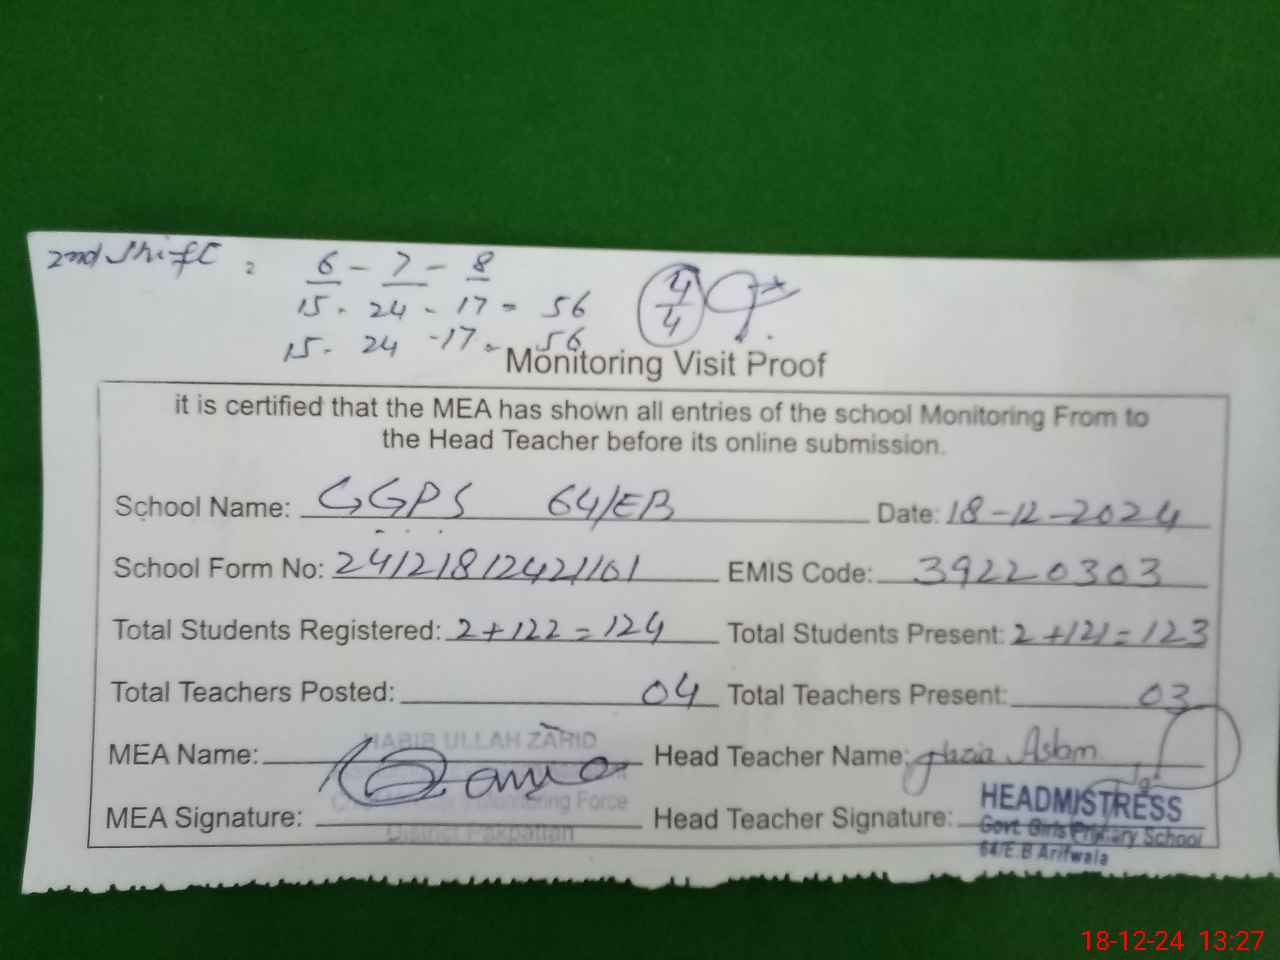 2nd Shift : 6 - 7 - 8
15 - 24 - 17 = 56
15 - 24 - 17 = 56
4/4
Monitoring Visit Proof
it is certified that the MEA has shown all entries of the school Monitoring From to
the Head Teacher before its online submission.
School Name: GGPS 64/EB Date: 18-12-2024
School Form No: 241218124211101 EMIS Code: 39220303
Total Students Registered: 2+122=124 Total Students Present: 2+121=123
Total Teachers Posted: 04 Total Teachers Present: 03
MEA Name: HABIB ULLAH ZAHID Head Teacher Name: Aslam
MEA Signature: Monitoring Force Head Teacher Signature: HEADMISTRESS
District Pakpattan Govt. Girls Primary School
64/E.B Arifwala
18-12-24 13:27